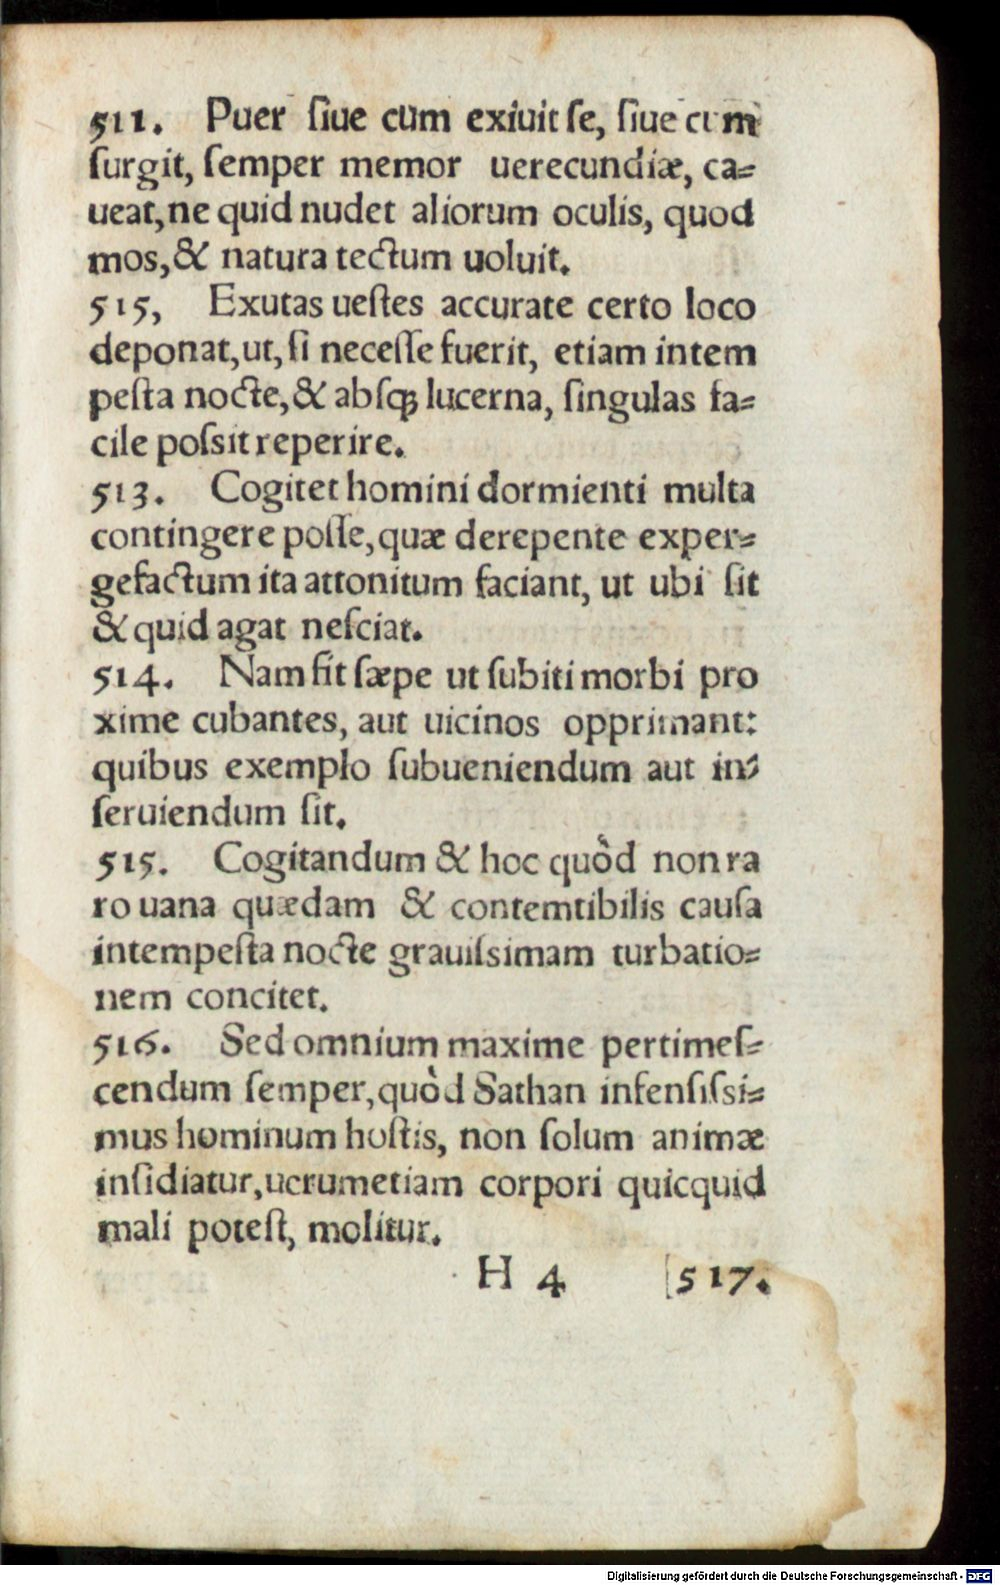 511. Puer ſiue cum exiuit ſe, ſiue cum
ſurgit, ſemper memor uerecundiæ, ca⸗
ueat, ne quid nudet aliorum oculis, quod
mos, & natura tectum uoluit.
515, Exutas ueſtes accurate certo loco
deponat, ut, ſi neceſſe fuerit, etiam intem
peſta nocte, & abſꝗ lucerna, ſingulas fa⸗
cile poſsit reperire.
513. Cogitet homini dormienti multa
contingere poſſe, quæ derepente exper⸗
gefactum ita attonitum faciant, ut ubi ſit
& quid agat neſciat.
514. Nam fit ſæpe ut ſubiti morbi pro
xime cubantes, aut uicinos opprimant:
quibus exemplo ſubueniendum aut in⸗
ſeruiendum ſit.
515. Cogitandum & hoc quòd non ra
ro uana quædam & contemtibilis cauſa
intempeſta nocte grauiſsimam turbatio⸗
nem concitet.
516. Sed omnium maxime pertimeſ⸗
cendum ſemper, quòd Sathan infenſiſsi⸗
mus hominum hoſtis, non ſolum animæ
inſidiatur, uerumetiam corpori quicquid
mali poteſt, molitur.
H 4 517.
Digitalisierung gefördert durch die Deutsche Forschungsgemeinschaft - DFG